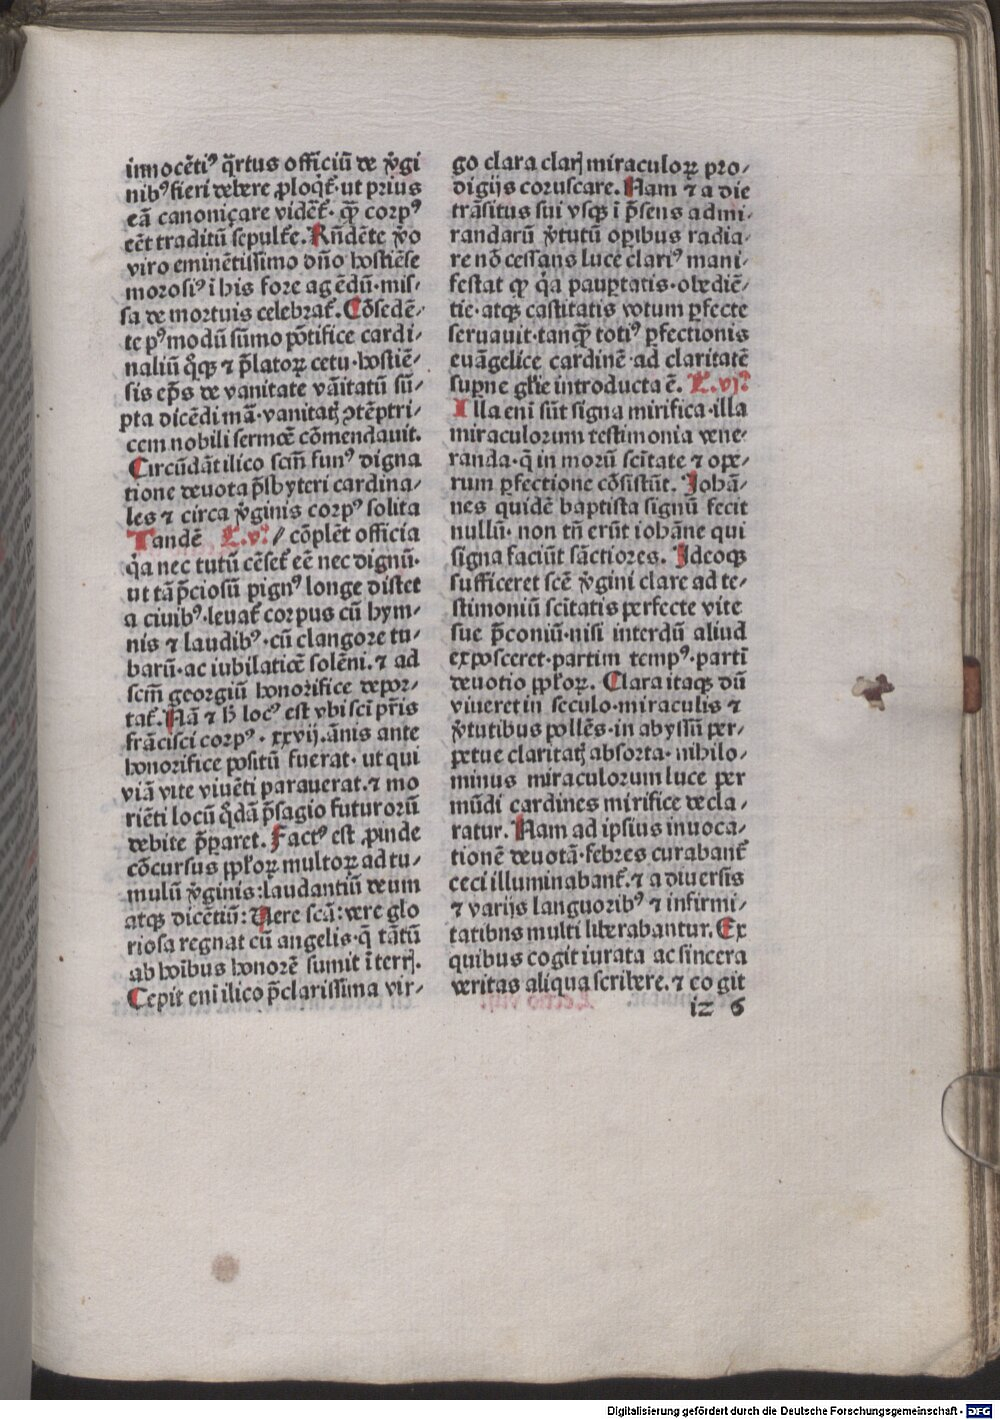 innocẽti⁹ q̃rtus officiũ de v̾gi
nib⁹ fieri debere ꝓloqt̃. ut prius
eã canoniçare vidẽt̃. qꝫ corp⁹
eẽt traditũ sepult̃e. Rñdẽte v̾o
viro eminẽtissimo dño hostiẽse
morosi⁹ ĩ his fore agẽdũ. mis/
sa de mortuis celebrat̃. Cõsedẽ/
te p⁹modũ sũmo põtifice cardi/
naliũ q̊ꝫ ⁊ p̃latoꝝ cetu. hostiẽ/
sis ep̃s de vanitate vãitatũ sũ/
pta dicẽdi mã. vanitatꝭ ꝯtẽptri/
cem nobili sermoẽ cõmendauit.
Circũdãt ilico scm̃ fun⁹ digna
tione deuota p̃sbyteri cardina/
les ⁊ circa v̾ginis corp⁹ solita
Tandẽ L.v⁹. // cõplẽt officia
q̃a nec tutũ cẽset̃ eẽ nec dignũ.
ut tã p̃ciosũ pign⁹ longe distet
a ciuib⁹. leuat̃ corpus cũ hym/
nis ⁊ laudib⁹. cũ clangore tu/
barũ. ac iubilaticẽ solẽni. ⁊ ad
scm̃ georgiũ honorifice depor/
tat̃. Nã ⁊ h̃ loc⁹ est vbi sci pr̃is
frãcisci corp⁹. xxvij. ãnis ante
honorifice positũ fuerat. ut qui
viã vite viuẽti parauerat. ⁊ mo
riẽti locũ q̊dã p̃sagio futurorũ
debite p̃pararet. Fact⁹ est ꝓinde
cõcursus ppl̃oꝝ multoꝝ ad tu/
mulũ v̾ginis: laudantiũ deum
atqꝫ dicẽtiũ: Uere scã: vere glo
riosa regnat cũ angelis. q̃ tãtũ
ab hoĩbus honorẽ sumit ĩ terrꝭ.
Cepit eni ilico p̃clarissima vir/
go clara clarꝭ miraculoꝝ pro/
digijs coruscare. Nam ⁊ a die
trãsitus sui vsqꝫ ĩ p̃sens admi/
randarũ v̾tutũ oꝑibus radia/
re nõ cessans luce clari⁹ mani/
festat qꝫ q̃a pauꝑtatis. obediẽ/
tie. atqꝫ castitatis votum ꝑfecte
seruauit. tanqꝫ toti⁹ ꝑfectionis
euãgelice cardinẽ ad claritatẽ
suꝑne gl̃ie introducta ẽ. L.vj⁹.
Illa eni sũt signa mirifica. illa
miraculorum testimonia vene/
randa. q̃ in morũ scĩtate ⁊ ope/
rum ꝑfectione cõsistũt. Johã/
nes quidẽ baptista signũ fecit
nullũ. non tñ erũt iohãne qui
signa faciũt sãctiores. Ideoqꝫ
sufficeret scẽ v̾gini clare ad te/
stimoniũ scitatis perfecte vite
sue p̃coniũ. nisi interdũ aliud
exposceret. partim temp⁹. partĩ
deuotio ppl̃oꝝ. Clara itaqꝫ dũ
viueret in seculo. miraculis ⁊
v̾tutibus pollẽs. in abyssũ per/
petue claritatꝭ absorta. nihilo/
minus miraculorum luce per
mũdi cardines mirifice decla/
ratur. Nam ad ipsius inuoca/
tionẽ deuotã. febres curabant̃
ceci illuminabant̃. ⁊ a diuersis
⁊ varijs languorib⁹ ⁊ infirmi/
tatibns multi liberabantur. Ex
quibus cogit iurata ac sincera
veritas aliqua scribere. ⁊ cogit
iz 6
Digitalisierung gefördert durch die Deutsche Forschungsgemeinschaft - DFG